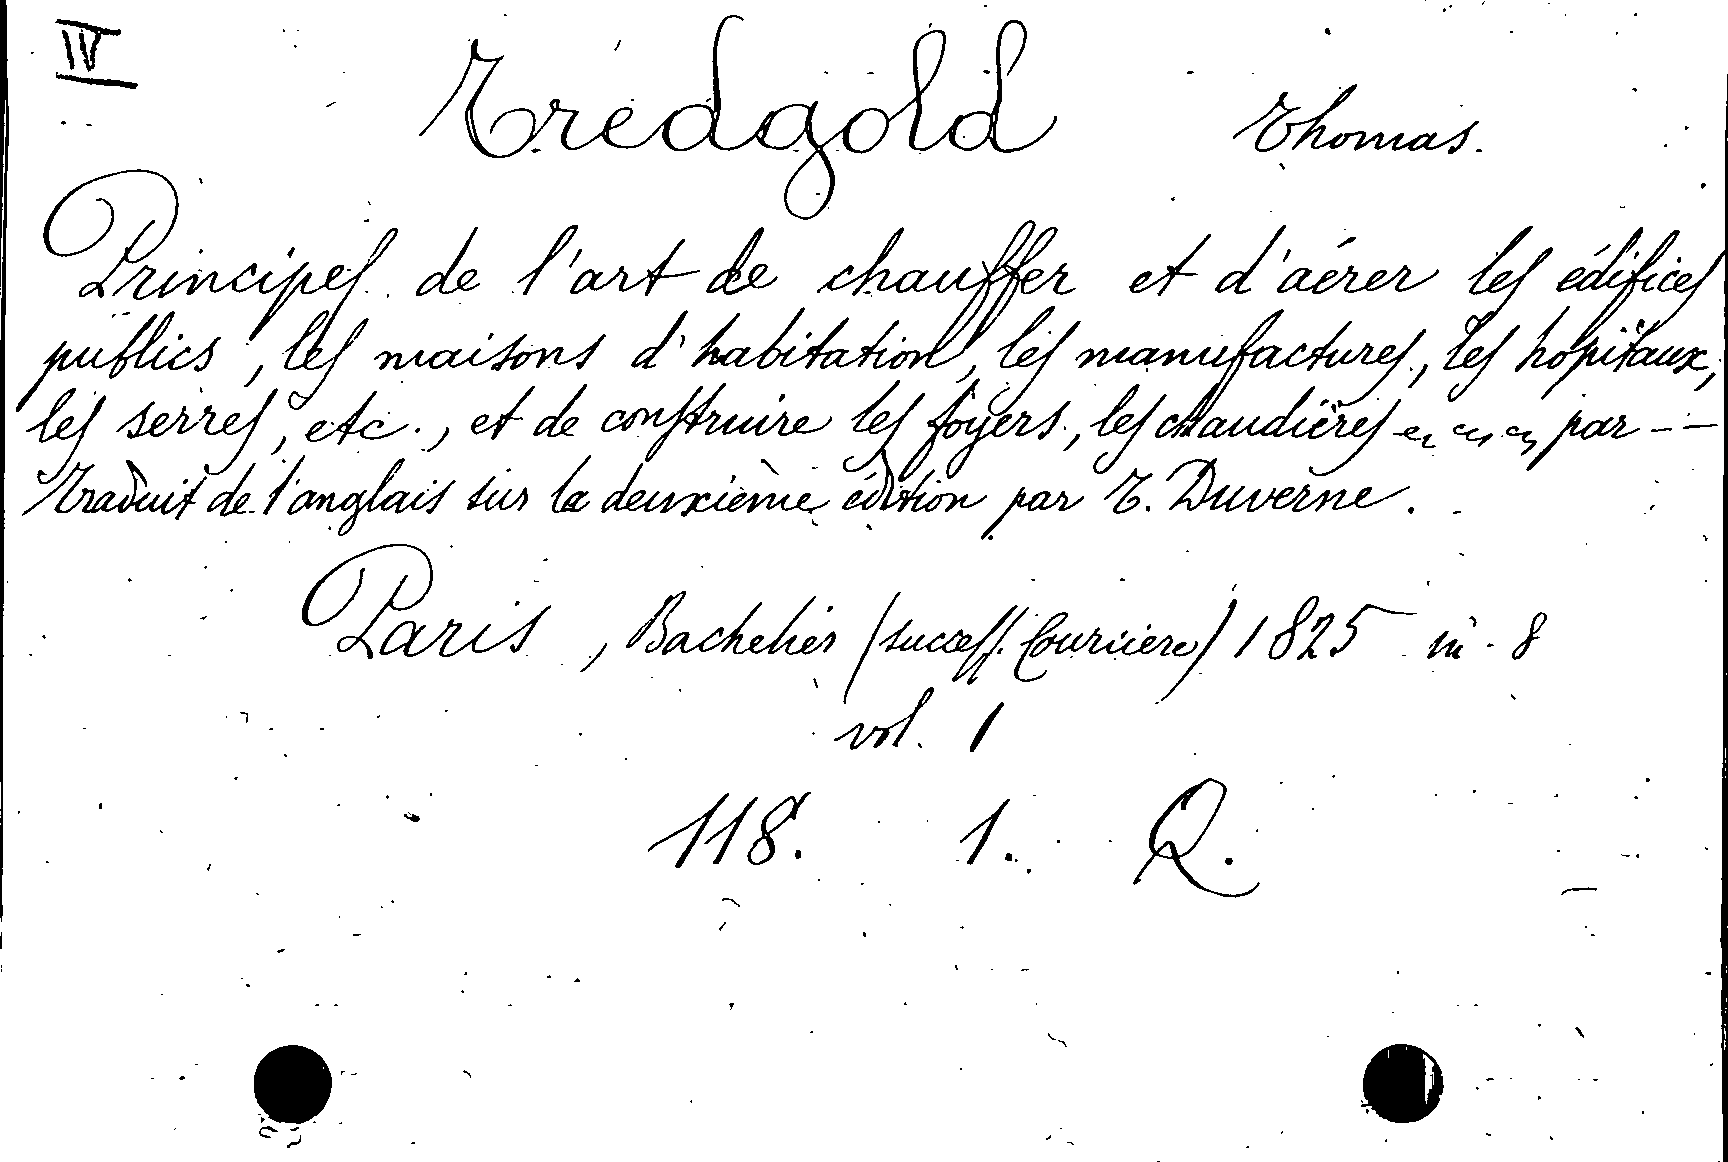 IV
Tredgold Thomas.
Principes de l'art de chauffer et d'aérer les édifices
publics, les maisons d'habitation, les manufactures, les hopitaux,
les serres, etc., et de construire les foyers, les chaudières par --
Traduit de l'anglais sur la deuxième édition par T. Duverne.
Paris, Bachelier (success. Courcier) 1825 in-8
vol. 1
118. 1. Q.